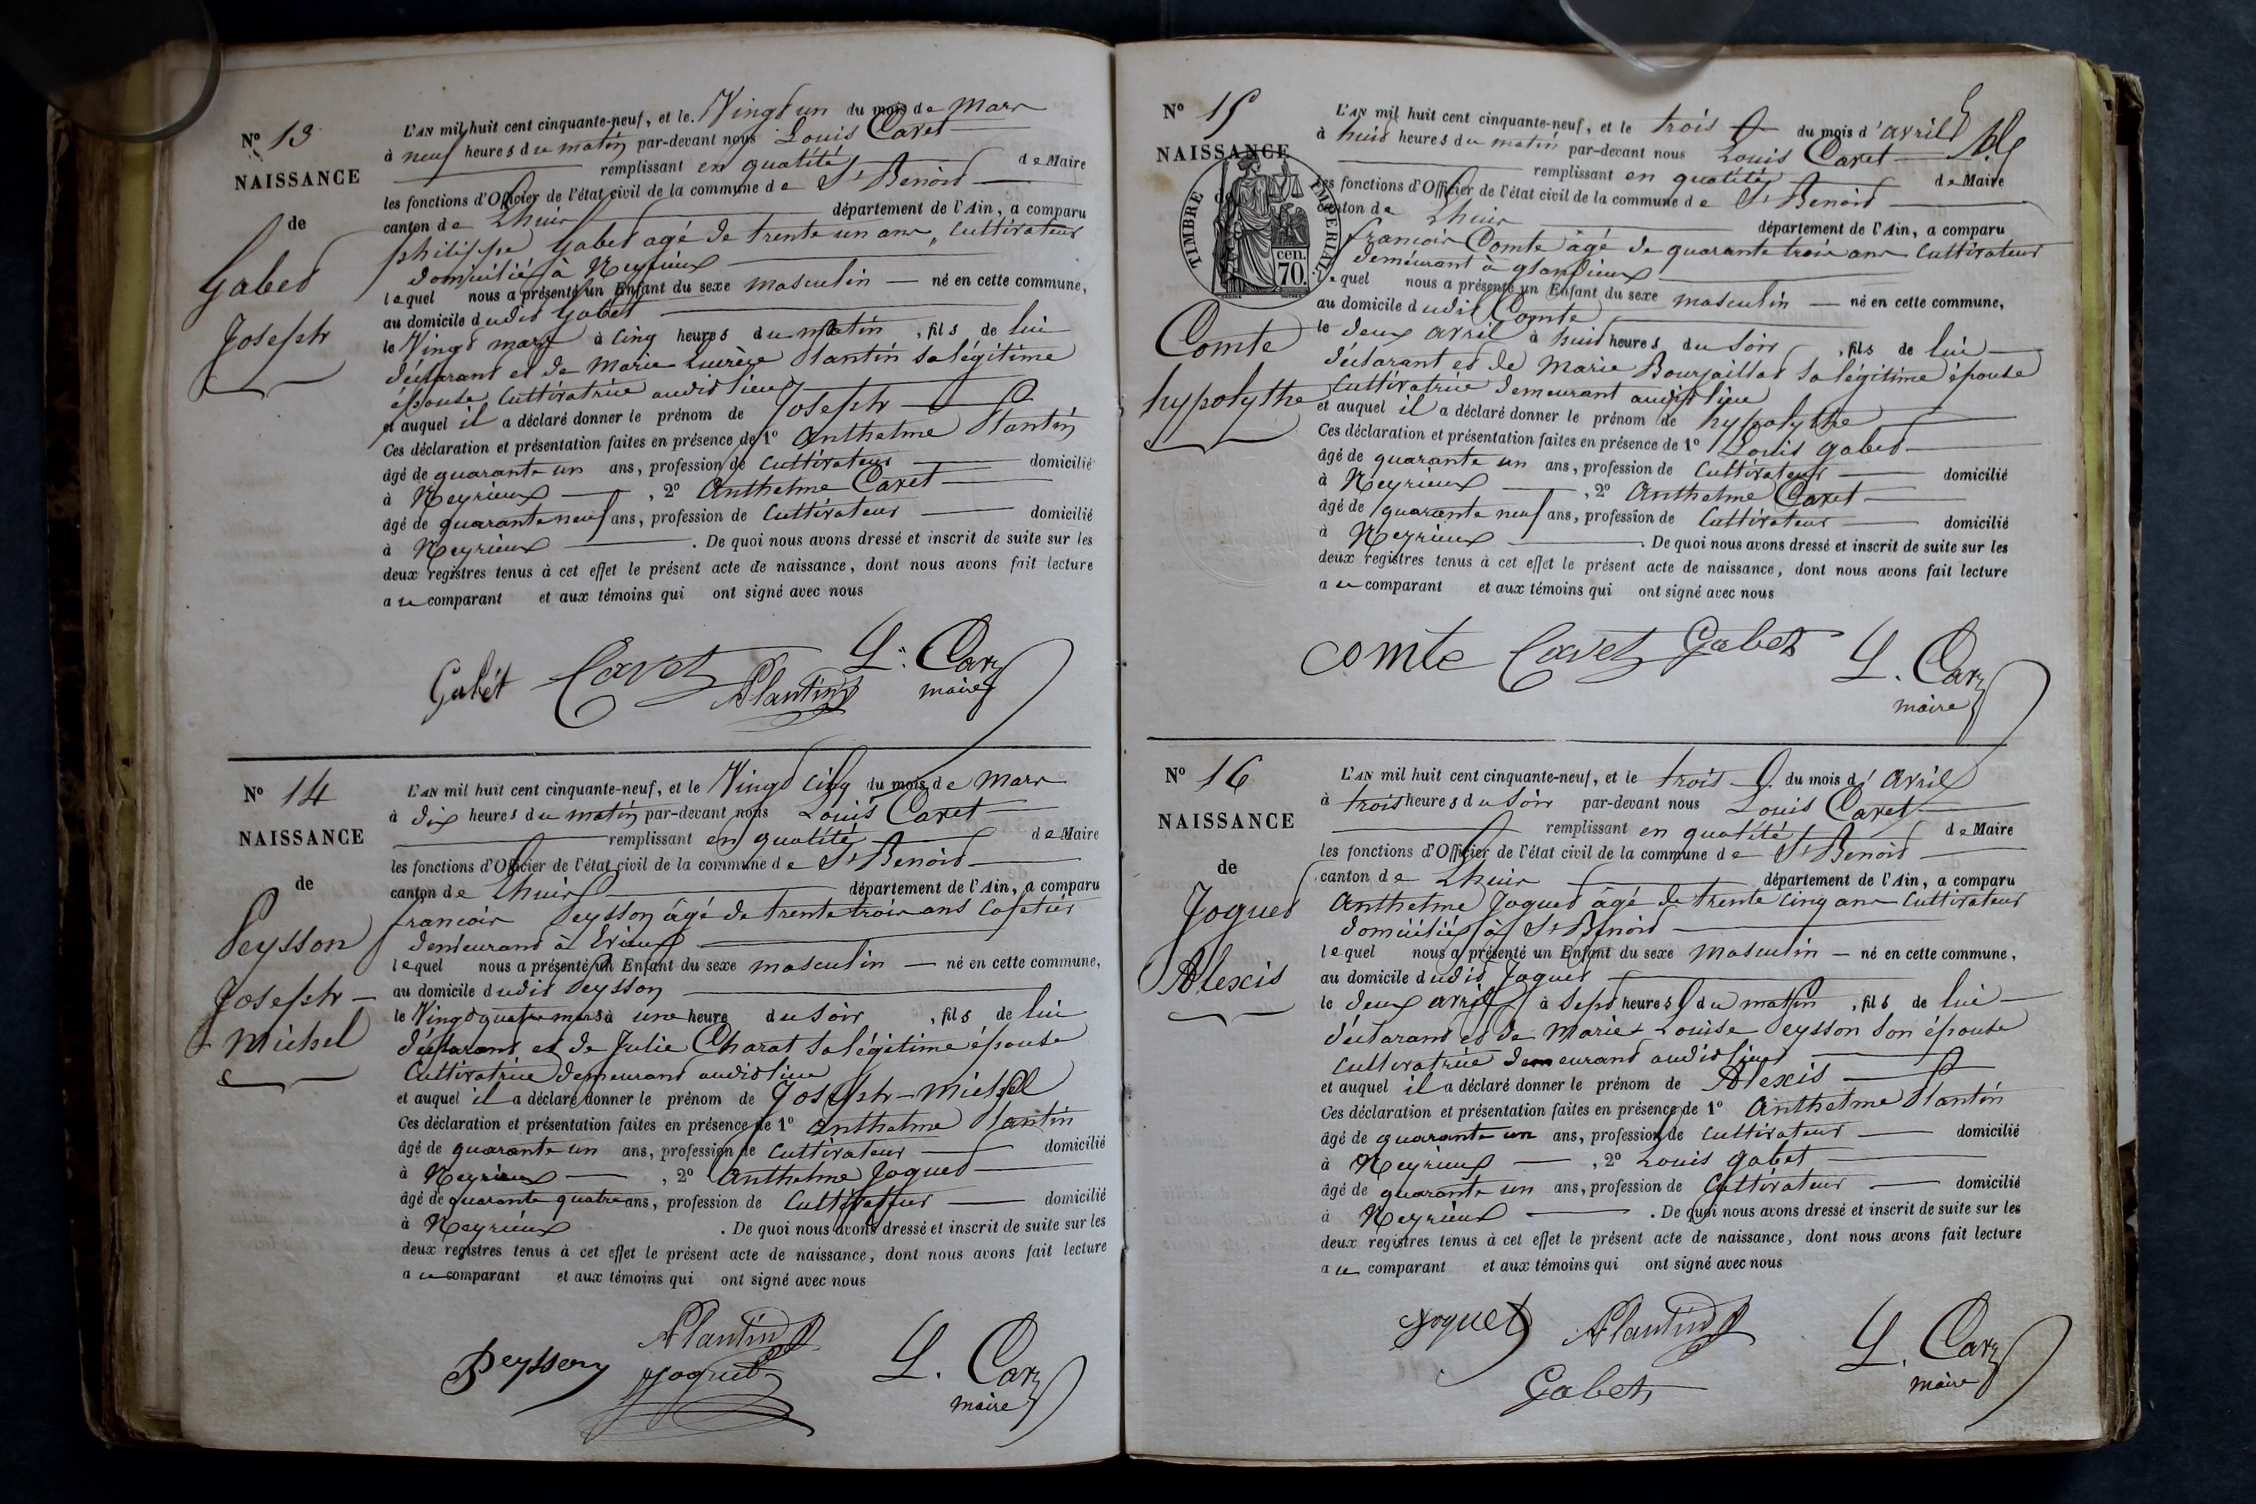 N° 13
NAISSANCE
de
Gabet
Joseph
L'AN mil huit cent cinquante-neuf, et le Vingt un du mois de mars
à neuf heures du matin par-devant nous Louis Cavet
remplissant en qualité de Maire
les fonctions d'Officier de l'état civil de la commune de St Benoit
canton de Lhuis département de l'Ain, a comparu
philippe Gabet agé de trente un ans, Cultivateur
domicilié à Neyrieux
lequel nous a présenté un Enfant du sexe masculin né en cette commune,
au domicile dudit Gabet
le Vingt mars à cinq heures du matin, fils de lui
déclarant et de Marie Plantin sa légitime
épouse Cultivatrice audit lieu
et auquel il a déclaré donner le prénom de Joseph
Ces déclaration et présentation faites en présence de 1° Anthelme Plantin
âgé de quarante un ans, profession de Cultivateur domicilié
à Neyrieux, 2° Anthelme Cavet
âgé de quarante neuf ans, profession de Cultivateur domicilié
à Neyrieux. De quoi nous avons dressé et inscrit de suite sur les
deux registres tenus à cet effet le présent acte de naissance, dont nous avons fait lecture
au comparant et aux témoins qui ont signé avec nous
Gabét Cavet Plantin L. Cav
maire
N° 14
NAISSANCE
de
Peysson
Joseph-
Michel
L'AN mil huit cent cinquante-neuf, et le Vingt Cinq du mois de mars
à dix heures du matin par-devant nous Louis Cavet
remplissant en qualité de Maire
les fonctions d'Officier de l'état civil de la commune de St Benoit
canton de Lhuis département de l'Ain, a comparu
francois Peysson âgé de trente trois ans Cafetier
demeurant à Evieux
lequel nous a présenté un Enfant du sexe masculin né en cette commune,
au domicile dudit Peysson
le Vingt quatre mars à une heure du soir, fils de lui
déclarant et de Julie Charat sa légitime épouse
Cultivatrice demeurant audit lieu
et auquel il a déclaré donner le prénom de Joseph-Michel
Ces déclaration et présentation faites en présence de 1° Anthelme Plantin
âgé de quarante un ans, profession de Cultivateur domicilié
à Neyrieux, 2° Anthelme Joguet
âgé de quarante quatre ans, profession de Cultivateur domicilié
à Neyrieux. De quoi nous avons dressé et inscrit de suite sur les
deux registres tenus à cet effet le présent acte de naissance, dont nous avons fait lecture
au comparant et aux témoins qui ont signé avec nous
Peysson Plantin Joguet L. Cav
maire
N° 15
NAISSANCE
de
TIMBRE IMPERIAL
cen. 70.
Comte
hypolythe
L'AN mil huit cent cinquante-neuf, et le trois du mois d'avril
à huit heures du matin par-devant nous Louis Cavet
remplissant en qualité de Maire
les fonctions d'Officier de l'état civil de la commune de St Benoit
canton de Lhuis département de l'Ain, a comparu
francois Comte âgé de quarante trois ans Cultivateur
demeurant à glandieux
lequel nous a présenté un Enfant du sexe masculin né en cette commune,
au domicile dudit Comte
le deux avril à huit heures du soir, fils de lui
déclarant et de Marie Bourjaillat sa légitime épouse
Cultivatrice demeurant audit lieu
et auquel il a déclaré donner le prénom de hypolythe
Ces déclaration et présentation faites en présence de 1° Louis gabet
âgé de quarante un ans, profession de Cultivateur domicilié
à Neyrieux, 2° Anthelme Cavet
âgé de quarante neuf ans, profession de Cultivateur domicilié
à Neyrieux. De quoi nous avons dressé et inscrit de suite sur les
deux registres tenus à cet effet le présent acte de naissance, dont nous avons fait lecture
au comparant et aux témoins qui ont signé avec nous
comte Cavet Gabet L. Cav
maire
N° 16
NAISSANCE
de
Joguet
Alexis
L'AN mil huit cent cinquante-neuf, et le trois du mois d'avril
à trois heures du soir par-devant nous Louis Cavet
remplissant en qualité de Maire
les fonctions d'Officier de l'état civil de la commune de St Benoit
canton de Lhuis département de l'Ain, a comparu
Anthelme Joguet âgé de trente cinq ans Cultivateur
domicilié à St Benoit
lequel nous a présenté un Enfant du sexe masculin né en cette commune,
au domicile dudit Joguet
le deux avril à sept heures du matin, fils de lui
déclarant et de Marie Louise Peysson son épouse
Cultivatrice demeurant audit lieu
et auquel il a déclaré donner le prénom de Alexis
Ces déclaration et présentation faites en présence de 1° Anthelme Plantin
âgé de quarante un ans, profession de cultivateur domicilié
à Neyrieux, 2° Louis gabet
âgé de quarante un ans, profession de Cultivateur domicilié
à Neyrieux. De quoi nous avons dressé et inscrit de suite sur les
deux registres tenus à cet effet le présent acte de naissance, dont nous avons fait lecture
au comparant et aux témoins qui ont signé avec nous
Joguet Plantin Gabet L. Cav
maire